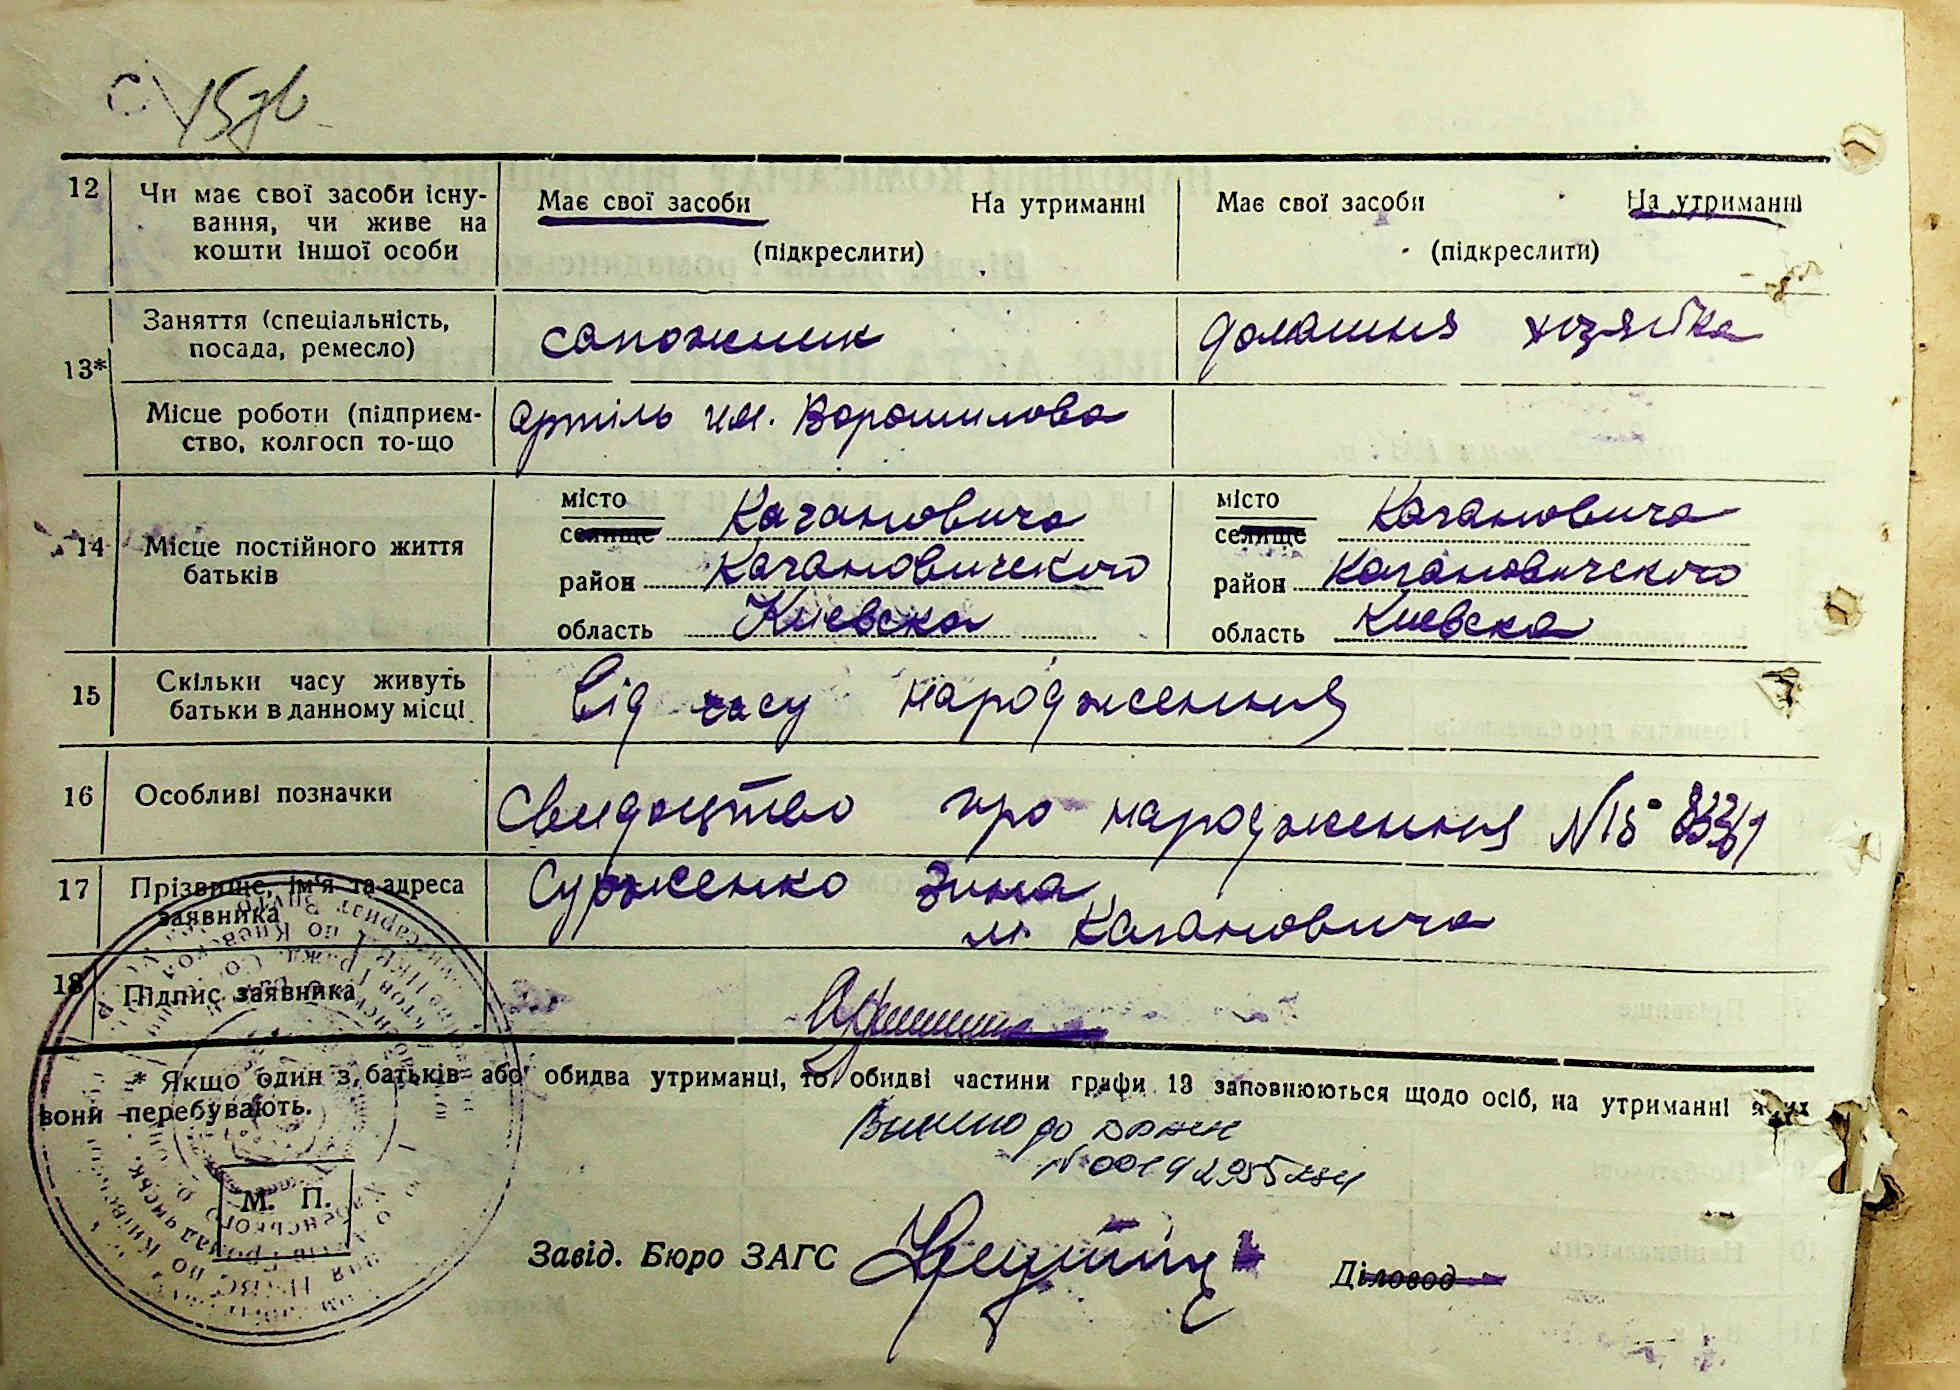 12 Чи має свої засоби існу-
вання, чи живе на
кошти іншої особи
Має свої засоби На утриманні
(підкреслити)
Має свої засоби На утриманні
(підкреслити)
13*
Заняття (спеціальність,
посада, ремесло)
сапожник
домашня хозяйка
Місце роботи (підприєм-
ство, колгосп то-що
артіль им. Ворошилова
14 Місце постійного життя
батьків
місто
селище Кагановича
район Кагановичского
область Киевска
місто
селище Кагановича
район Кагановичского
область Киевска
15 Скільки часу живуть
батьки в данному місці
Від часу народження
16 Особливі позначки
Свидоцтво про народження №
17 Прізвище, ім'я та адреса
заявника
Сурженко Зина
м. Кагановича
18 Підпис заявника
* Якщо один з батьків або обидва утриманці, то обидві частини графи 13 заповнюються щодо осіб, на утриманні яких
вони перебувають.
М. П.
Завід. Бюро ЗАГС
Діловод